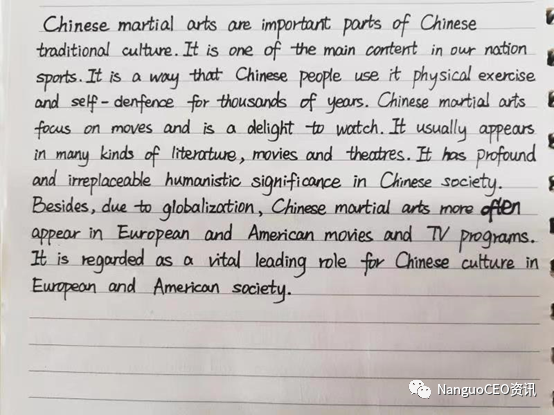 Chinese martial arts are important parts of Chinese
traditional culture. It is one of the main content in our nation
sports. It is a way that Chinese people use it physical exercise
and self-denfence for thousands of years. Chinese martial arts
focus on moves and is a delight to watch. It usually appears
in many kinds of literature, movies and theatres. It has profound
and irreplaceable humanistic significance in Chinese society.
Besides, due to globalization, Chinese martial arts more often
appear in European and American movies and TV programs.
It is regarded as a vital leading role for Chinese culture in
European and American society.
NanguoCEO资讯